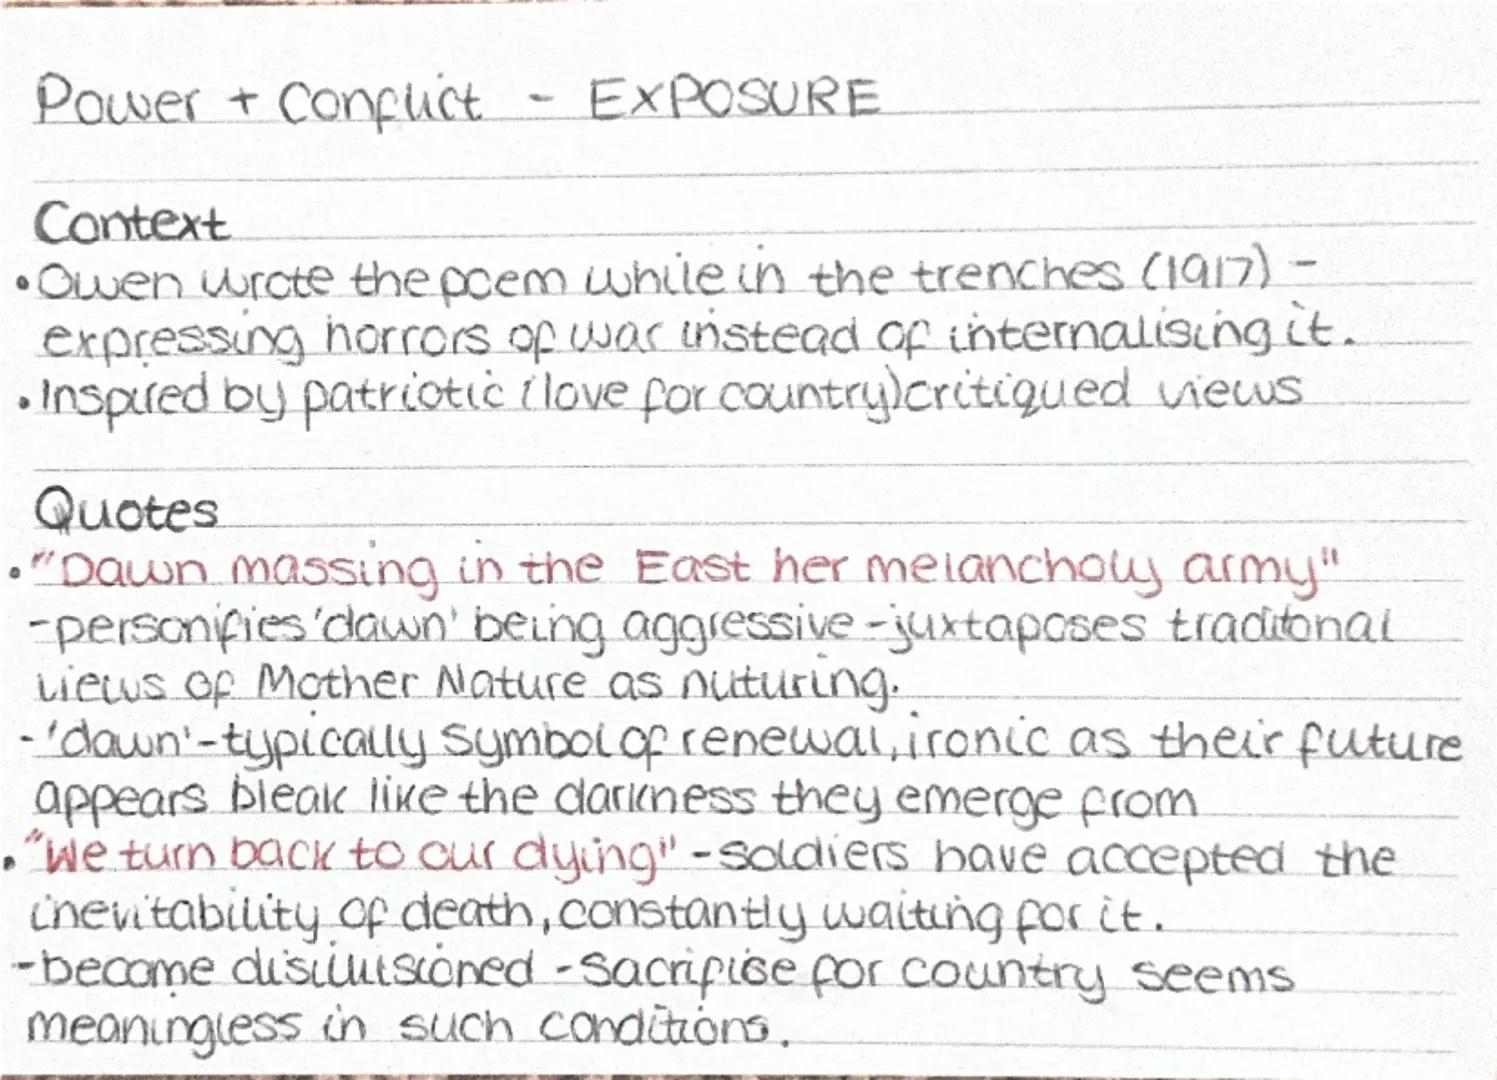 Power + Conflict - EXPOSURE
Context
•Owen wrote the poem while in the trenches (1917) -
expressing horrors of war instead of internalising it.
•Inspired by patriotic (love for country) critiqued views
Quotes
•"Dawn massing in the East her melancholy army"
-personifies 'dawn' being aggressive -juxtaposes traditonal
views of Mother Nature as nuturing.
-'dawn'-typically symbol of renewal, ironic as their future
appears bleak like the darkness they emerge from
•"We turn back to our dying" -soldiers have accepted the
inevitability of death, constantly waiting for it.
-become disillusioned -sacrifise for country seems
meaningless in such conditions.